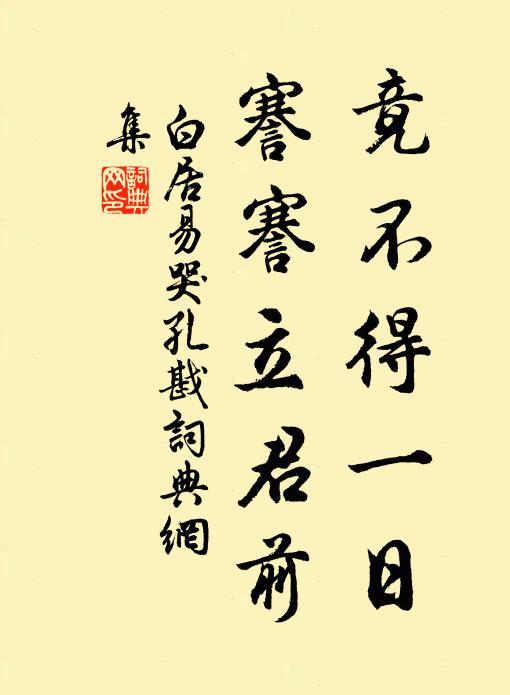 竟不得一日
謇謇立君前
白居易哭孔戡詞典網
集
詞典
网印